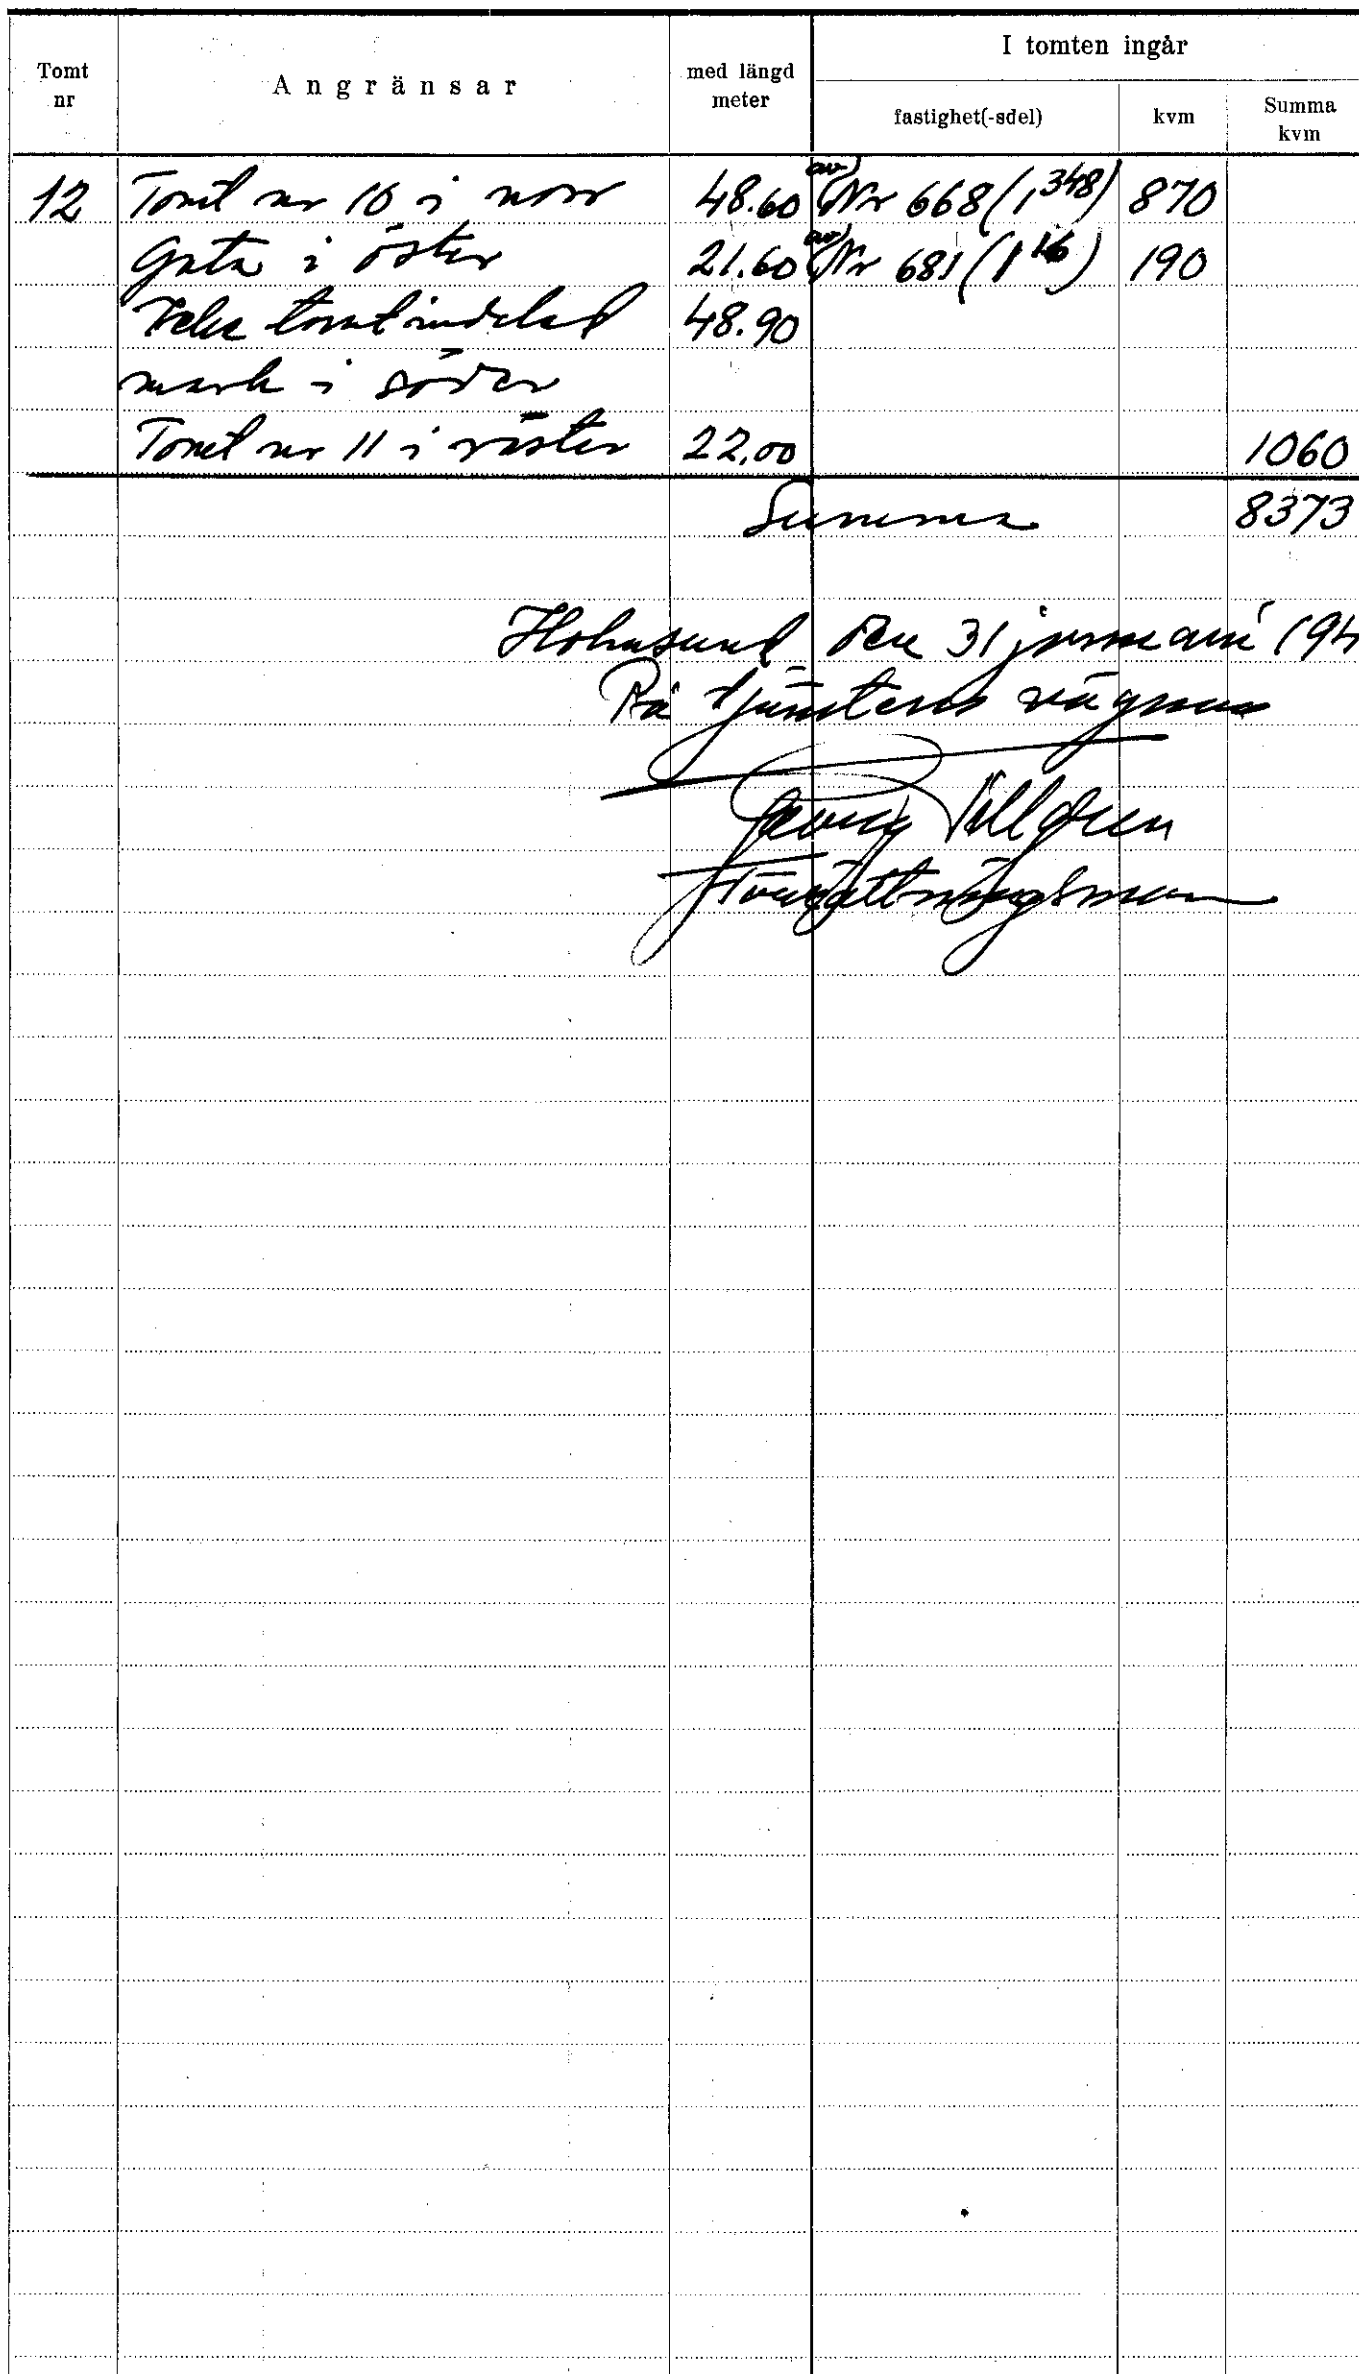 I tomten ingår
Tomt nr
Angränsar
med längd meter
fastighet(-sdel)
kvm
Summa kvm
12 Tomt nr 10 i norr 48.60 av) Nr 668 (1,348) 870
Gata i öster 21.60 av) Nr 681 (1 16) 190
Icke tomtindelad 48.90
mark i söder
Tomt nr 11 i väster 22,00 1060
Summa 8373
Holmsund den 31 januari 194
På tjänstens vägnar
Georg
Förrättningsman